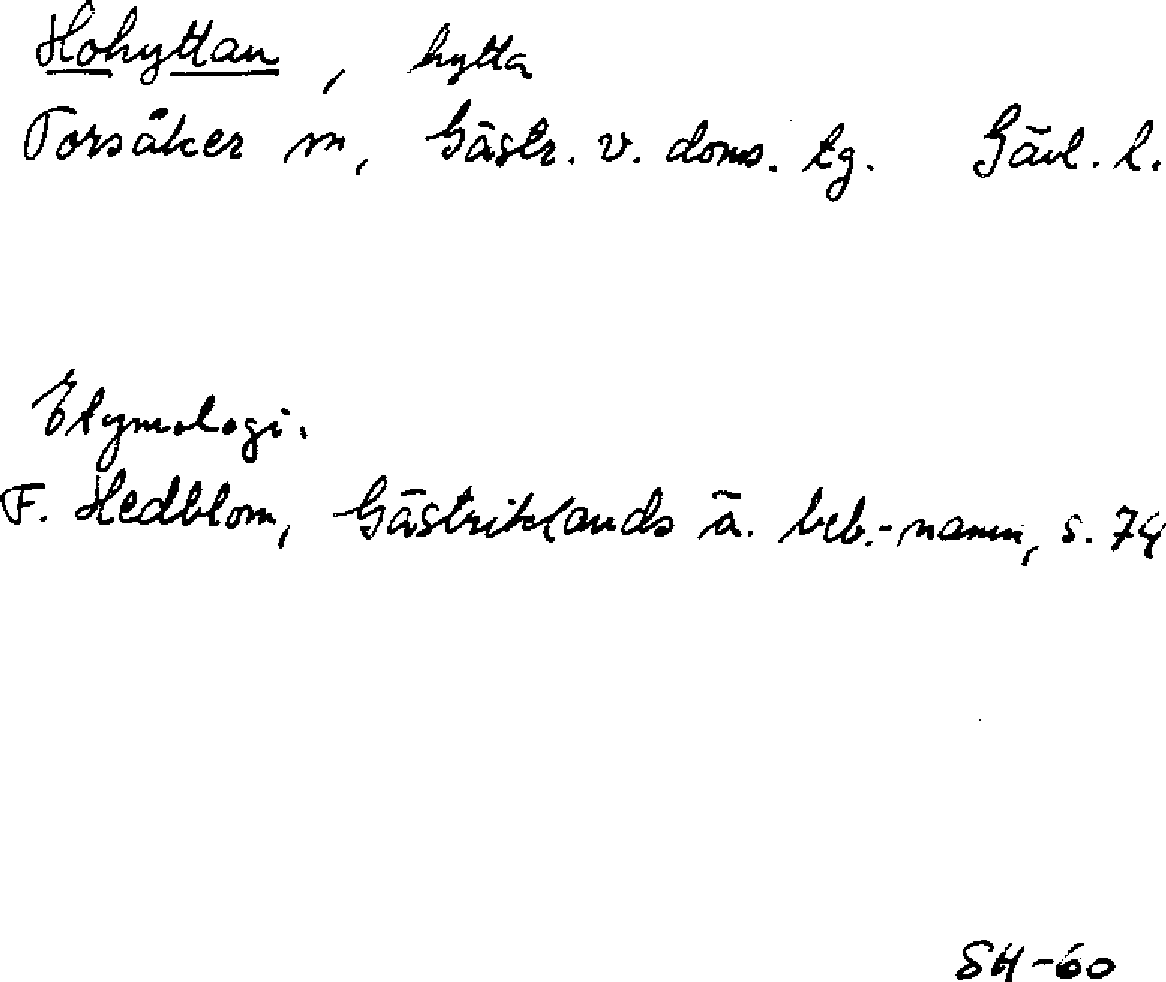 Hohyttan, hytta
Torsåker sn, Gästr. v. doms. tg. Gävl. l.
Etymologi.
F. Hedblom, Gästriklands ä. beb.-namn, s. 74
SH-60